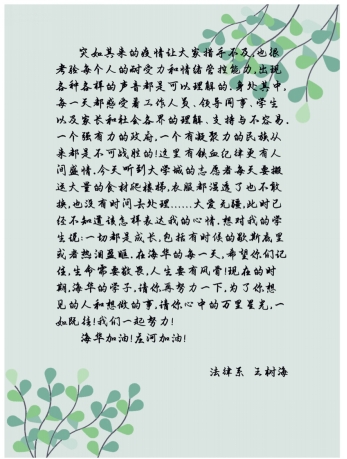 突如其来的疫情让大家措手不及,也很
考验每个人的耐受力和情绪管控能力,出现
各种各样的声音都是可以理解的,身处其中,
每一天都感受着工作人员、领导同事、学生
以及家长和社会各界的理解、支持与不容易,
一个强有力的政府,一个有凝聚力的民族从
来都是不可战胜的!这里有铁血纪律更有人
间盛情,今天听到大学城的志愿者每天要搬
运大量的食材爬楼梯,衣服都湿透了也不敢
换,也没有时间去处理……大爱无疆,此时已
经不知道该怎样表达我的心情,想对我的学
生说:一切都是成长,包括有时候的歇斯底里
或者热泪盈眶,在海华的每一天,希望你们记
住,生命需要敬畏,人生要有风骨!现在的时
期,海华的学子,请你再努力一下,为了你想
见的人和想做的事,请你心中的万里星光,一
如既往!我们一起努力!
海华加油!左河加油!
法律系 王树海